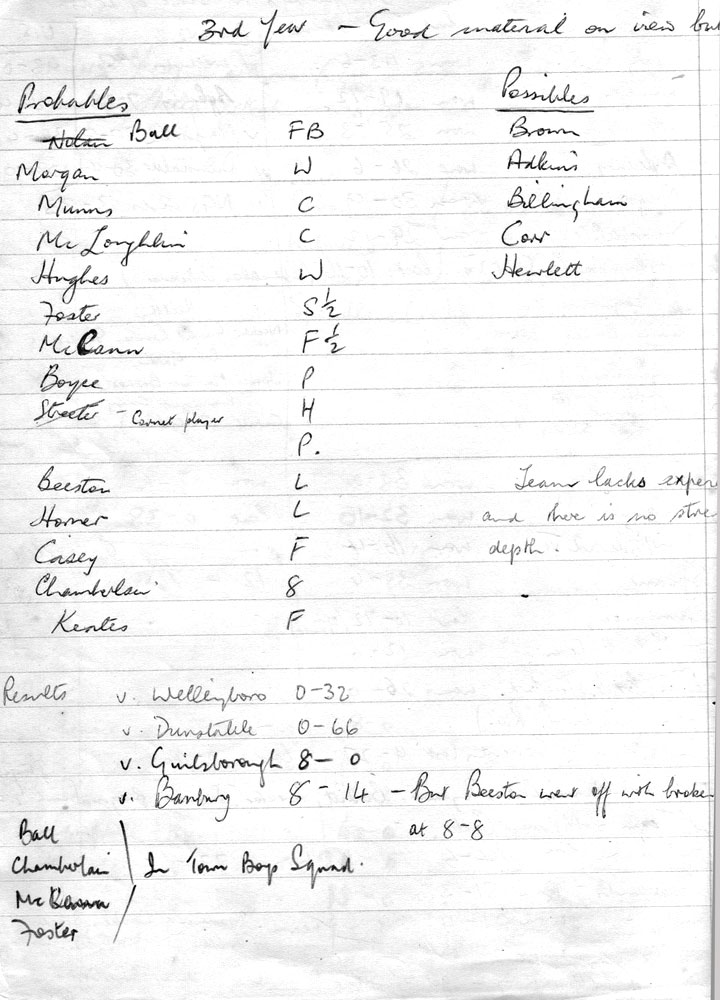 3rd Year — Good material on view but
Probables Possibles
Nolan Ball FB Brown
Morgan W Adkins
Munns C Billingham
McLoughlin C Corr
Hughes W Hewlett
Foster S½
McCann F½
Boyce P
Streeter - Cornet player H
P.
Beeston L Team lacks exper
Horner L and there is no stre
Casey F depth.
Chamberlain 8
Kentes F
Results v. Wellingboro 0-32
v. Dunstable 0-66
v. Guilsborough 8-0
v. Banbury 8-14 - But Beeston went off with broken
at 8-8
Ball
Chamberlain In Town Boys Squad.
McCann
Foster